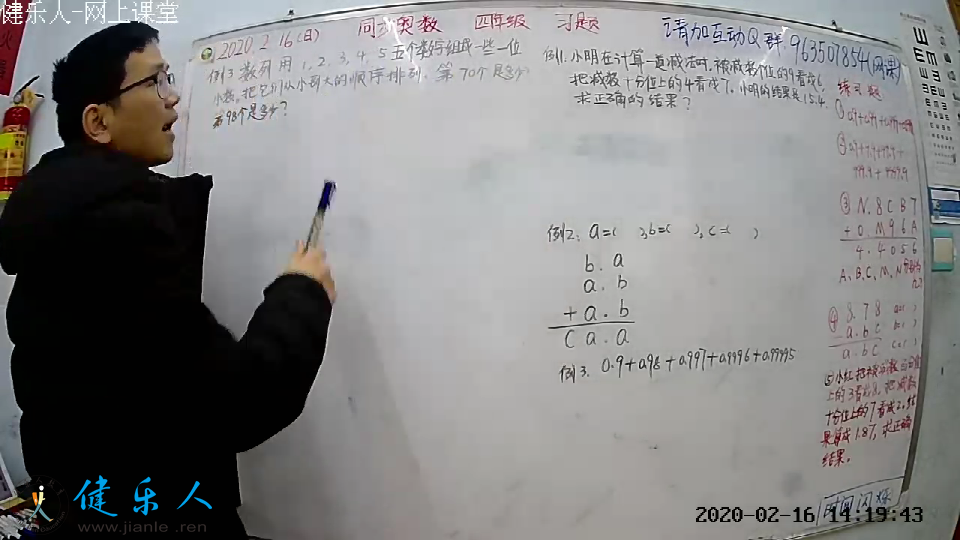 健乐人-网上课堂
2020.2.16(日) 同步奥数 四年级 习题 请加互动Q群:963507854(网课)
例3 数列 用1,2,3,4,5五个数字组成一些一位
小数,把它们从小到大的顺序排列,第70个是多少
第98个是多少?
例1.小明在计算一道减法时,被减数个位的9看成6,
把减数十分位上的4看成7,小明的结果是15.4,
求正确的结果?
例2: a=( ),b=( ),c=( )
b.a
a.b
+a.b
ca.a
例3. 0.9+0.98+0.997+0.9996+0.99995
练习题
③ N.8CB7
+0.M96A
4.4056
A、B、C、M、N
④ 8.78 a=( )
-a.bc b=( )
a.bc c=( )
⑤小红把被减数
上的3看成8,把减数
十分位上的7看成2,结
果算成1.87,求正确
结果。
时间闪烁
健乐人
www.jianle.ren
2020-02-16 14:19:43